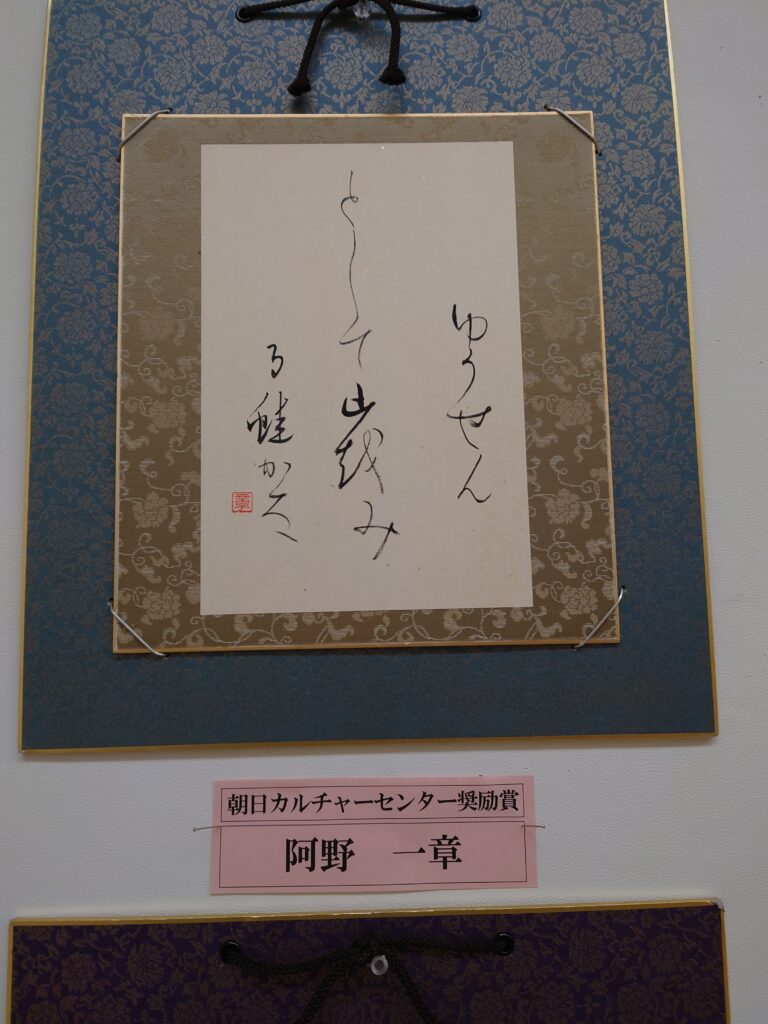 ゆうせん
として山越み
る蛙かな
朝日カルチャーセンター奨励賞
阿野 一章